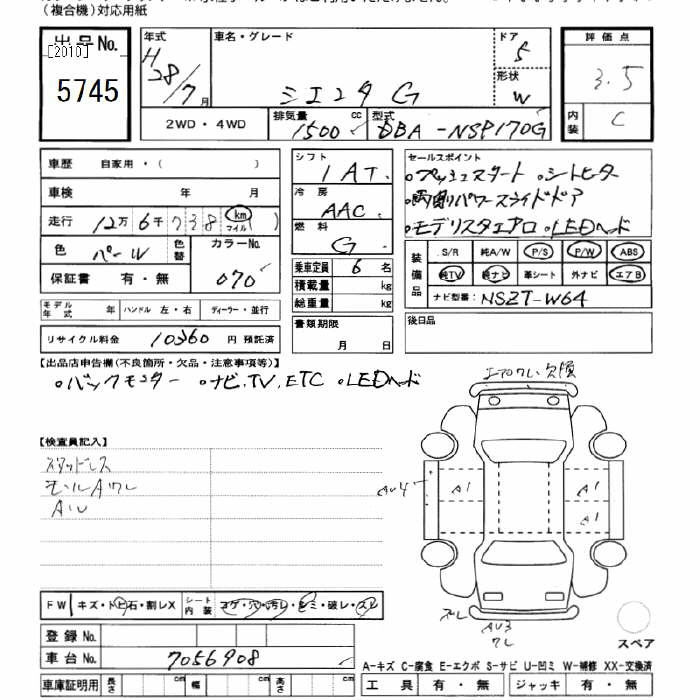 (複合機)対応用紙
出品No.
[2010]
5745
年式 H28/7月
車名・グレード
シエンタ G
ドア 5
形状 W
評価点
3.5
内装 C
2WD・4WD
排気量 1500 cc
型式 DBA-NSP170G
車歴 自家用・( )
車検 年 月
走行 12万6千738 km マイル ( )
色 パール
色替
カラーNo. 070
保証書 有・無
シフト 1AT
冷房 AAC
燃料 G
乗車定員 6名
積載量 kg
総重量 kg
セールスポイント
・プッシュスタート ・シートヒーター
・両側パワースライドドア
・モデリスタエアロ ・LEDヘッド
装備品
S/R 純A/W P/S P/W ABS
純TV 純ナビ 革シート 外ナビ エアB
ナビ型番: NSZT-W64
モデル年式 年 ハンドル 左・右 ディーラー・並行
リサイクル料金 10360 円 預託済
書類期限
月 日
後日品
【出品店申告欄(不良箇所・欠品・注意事項等)】
・バックモニター ・ナビ,TV,ETC ・LEDヘッド
エアロワレ欠損
【検査員記入】
スタッドレス
モールAワレ
AU4
A1
A1
A1
AU3
ワレ
スペア
FW キズ・トビ石・割レX
シート内装 コゲ・穴・汚レ・シミ・破レ・スレ
登録No.
車台No. 7056908
車庫証明用 長さ cm 幅 cm 高さ cm
A-キズ C-腐食 E-エクボ S-サビ U-凹ミ W-補修 XX-交換済
工具 有・無 ジャッキ 有・無